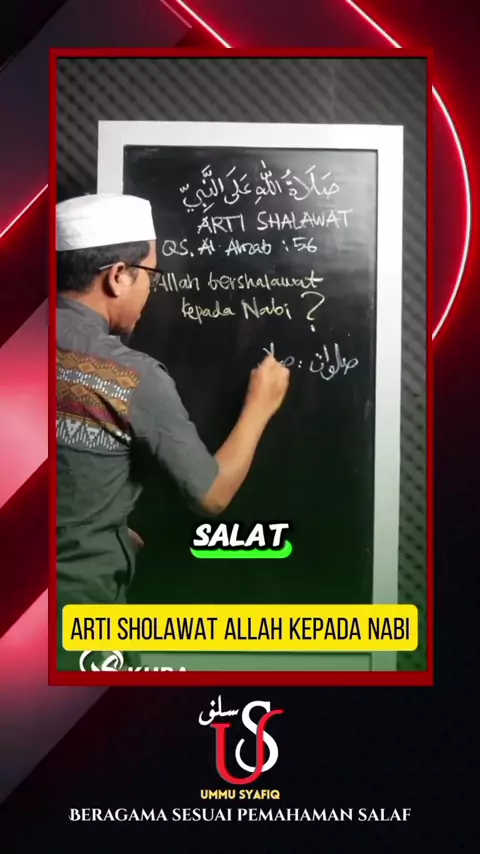 صَلَاةُ اللّٰهِ عَلَى النَّبِيِّ
ARTI SHALAWAT
QS. Al Ahzab : 56
Allah bershalawat
kepada Nabi ?
صلوات : صلا
SALAT
ARTI SHOLAWAT ALLAH KEPADA NABI
سلف
US
UMMU SYAFIQ
BERAGAMA SESUAI PEMAHAMAN SALAF